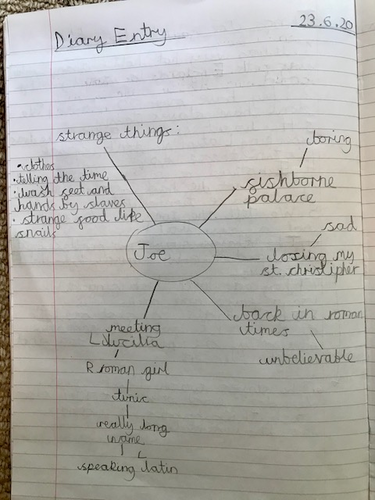 23.6.20
Diary Entry
strange things:
• clothes
• telling the time
• wash feet and
hands by slaves
• strange food like
snails
boring
fishborne
palace
Joe
sad
losing my
st. christipher
back in roman
times
unbelievable
meeting
Lucilia
Roman girl
tunic
really long
name
speaking latin